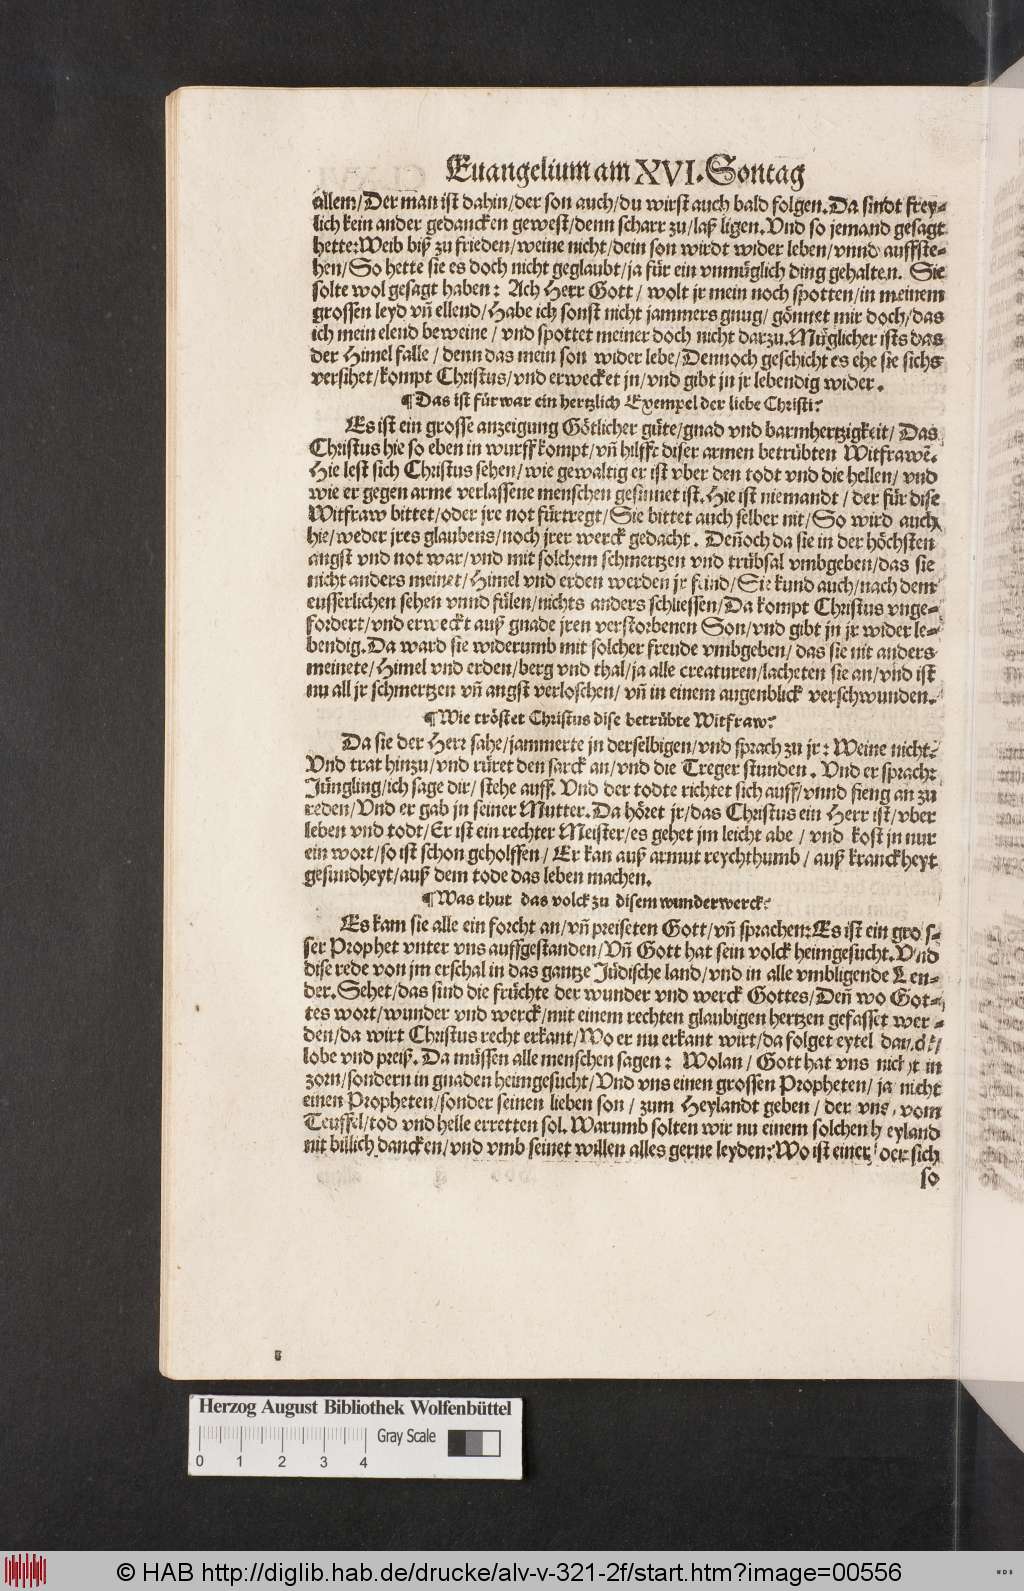 Euangelium am XVI. Sontag
allem/Der man ist dahin/der son auch/du wirst auch bald folgen. Da sindt frey-
lich kein ander gedancken gewest/denn scharr zu/laß ligen. Vnd so jemand gesagt
hette: Weib biß zu frieden/weine nicht/dein son wirdt wider leben/vnnd auffste-
hen/So hette sie es doch nicht geglaubt/ja für ein vnmüglich ding gehalten. Sie
solte wol gesagt haben: Ach Herr Gott/ wolt jr mein noch spotten/in meinem
grossen leyd vn̄ ellend/Habe ich sonst nicht jammers gnug/ gönnet mir doch/das
ich mein elend beweine/ vnd spottet meiner doch nicht darzu. Müglicher ists das
der Himel falle/ denn das mein son wider lebe/Dennoch geschicht es ehe sie sichs
versihet/kompt Christus/vnd erwecket jn/vnd gibt jn jr lebendig wider.
¶ Das ist fürwar ein hertzlich Exempel der liebe Christi?
Es ist ein grosse anzeigung Götlicher güte/gnad vnd barmhertzigkeit/ Das
Christus hie so eben in wurff kompt/vn̄ hilfft diser armen betrübten Witfrawē.
Hie lest sich Christus sehen/wie gewaltig er ist vber den todt vnd die hellen/ vnd
wie er gegen arme verlassene menschen gesinnet ist. Hie ist niemandt/ der für dise
Witfraw bittet/oder jre not fürtregt/Sie bittet auch selber nit/So wird auch
hie/weder jres glaubens/noch jrer werck gedacht. Den̄och da sie in der höchsten
angst vnd not war/vnd mit solchem schmertzen vnd trübsal vmbgeben/das sie
nicht anders meinet/Himel vnd erden werden jr feind/Sie kund auch/nach dem
eusserlichen sehen vnnd fülen/nichts anders schliessen/Da kompt Christus vnge-
fordert/vnd erweckt auß gnade jren verstorbenen Son/vnd gibt jn jr wider le-
bendig. Da ward sie widerumb mit solcher freude vmbgeben/ das sie nit anders
meinete/Himel vnd erden/berg vnd thal/ja alle creaturen/lacheten sie an/vnd ist
nu all jr schmertzen vn̄ angst verloschen/ vn̄ in einem augenblick verschwunden.
¶ Wie tröstet Christus dise betrübte Witfraw?
Da sie der Herr sahe/jammerte jn derselbigen/vnd sprach zu jr: Weine nicht?
Vnd trat hinzu/vnd rüret den sarck an/vnd die Treger stunden. Vnd er sprach:
Jüngling/ich sage dir/ stehe auff. Vnd der todte richtet sich auff/vnnd fieng an zu
reden/Vnd er gab jn seiner Mutter. Da höret jr/das Christus ein Herr ist/vber
leben vnd todt/Er ist ein rechter Meister/es gehet jm leicht abe/ vnd kost jn nur
ein wort/so ist schon geholffen/ Er kan auß armut reychthumb/ auß kranckheyt
gesundheyt/auß dem tode das leben machen.
¶ Was thut das volck zu disem wunderwerck?
Es kam sie alle ein forcht an/vn̄ preiseten Gott/vn̄ sprachen: Es ist ein gros-
ser Prophet vnter vns auffgestanden/Vn̄ Gott hat sein volck heimgesucht. Vnd
dise rede von jm erschal in das gantze Jüdische land/vnd in alle vmbligende Len-
der. Sehet/das sind die früchte der wunder vnd werck Gottes/Den̄ wo Got-
tes wort/wunder vnd werck/mit einem rechten glaubigen hertzen gefasset wer-
den/da wirt Christus recht erkant/Wo er nu erkant wirt/da folget eytel
lobe vnd preiß. Da müssen alle menschen sagen: Wolan/ Gott hat vns nicht in
zorn/sondern in gnaden heimgesucht/Vnd vns einen grossen Propheten/ ja nicht
einen Propheten/sonder seinen lieben son/ zum Heylandt geben/ der vns vom
Teuffel/tod vnd helle erretten sol. Warumb solten wir nu einem solchen heyland
nit billich dancken/vnd vmb seinet willen alles gerne leyden? Wo ist einer der sich
so
Herzog August Bibliothek Wolfenbüttel
Gray Scale
0 1 2 3 4
© HAB http://diglib.hab.de/drucke/alv-v-321-2f/start.htm?image=00556